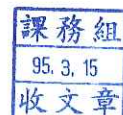 課務組
95. 3. 15
收文章